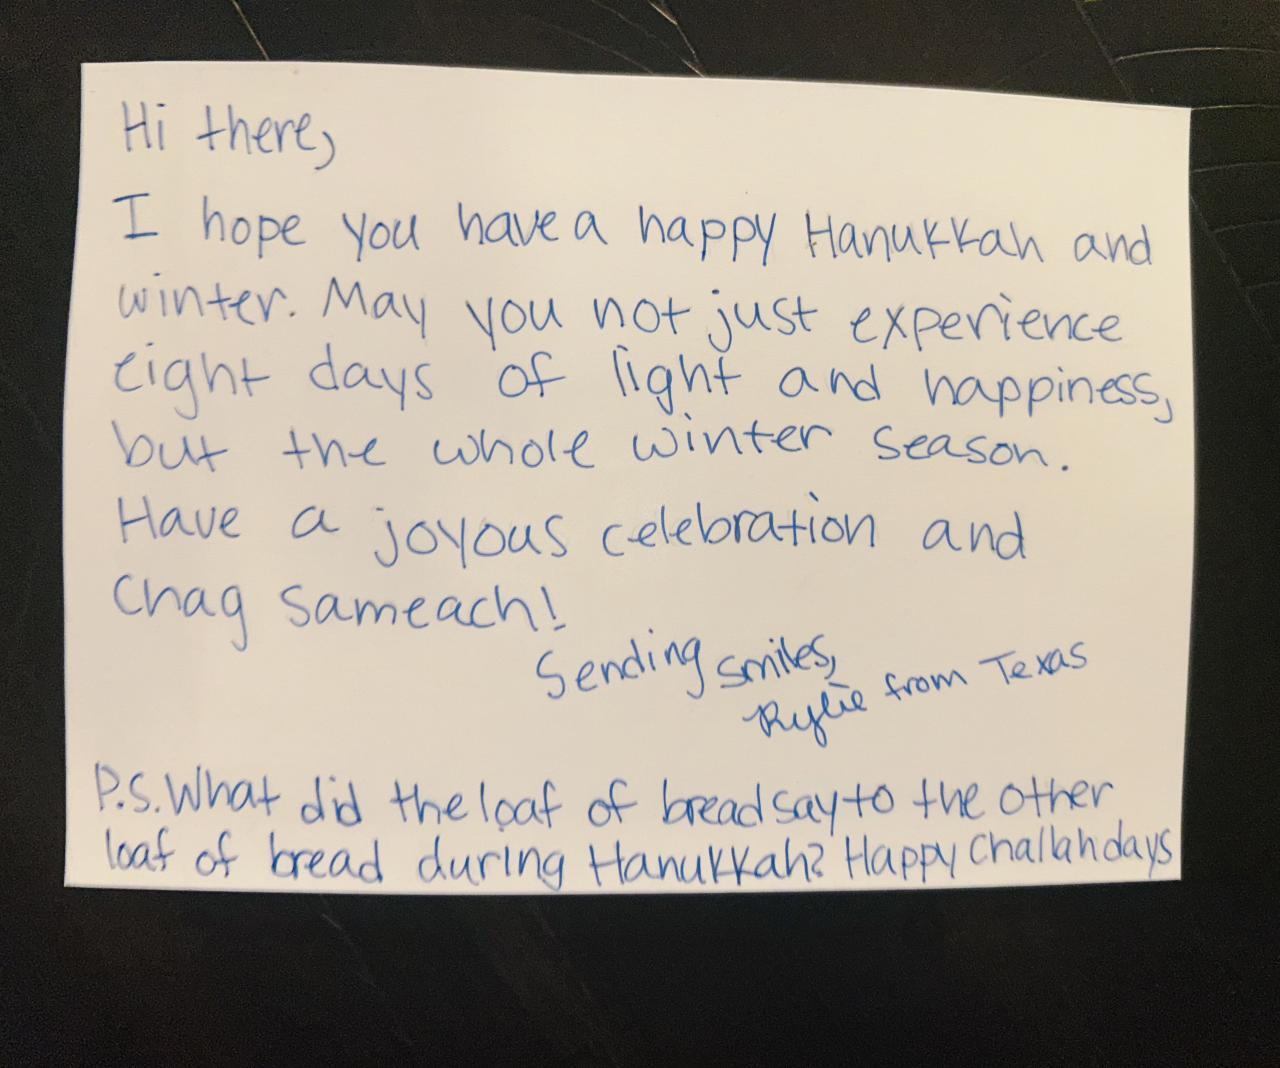 Hi there,
I hope you have a happy Hanukkah and
winter. May you not just experience
eight days of light and happiness,
but the whole winter season.
Have a joyous celebration and
Chag Sameach!
Sending smiles,
Rylie from Texas
P.S. What did the loaf of bread say to the other
loaf of bread during Hanukkah? Happy Challahdays